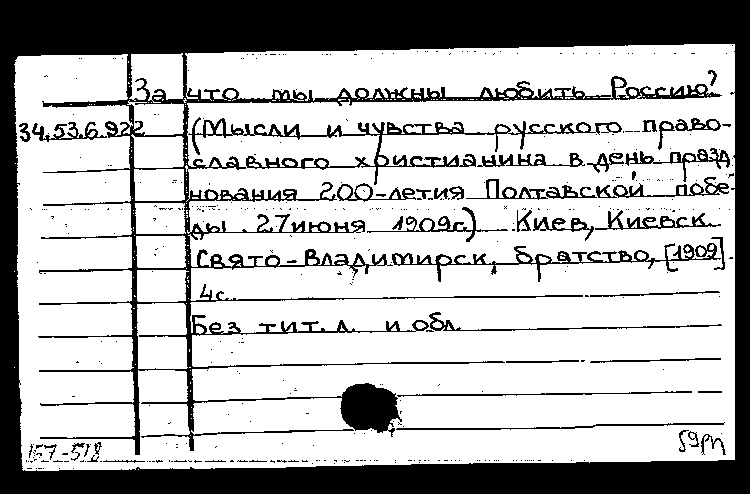 За что мы должны любить Россию?
34.53.6.922 (Мысли и чувства русского право-
славного христианина в день празд
нования 200-летия Полтавской побе-
ды. 27 июня 1909г.) Киев, Киевск.
Свято-Владимирск. братство, [1909].
4с.
Без тит. л. и обл.
157-518